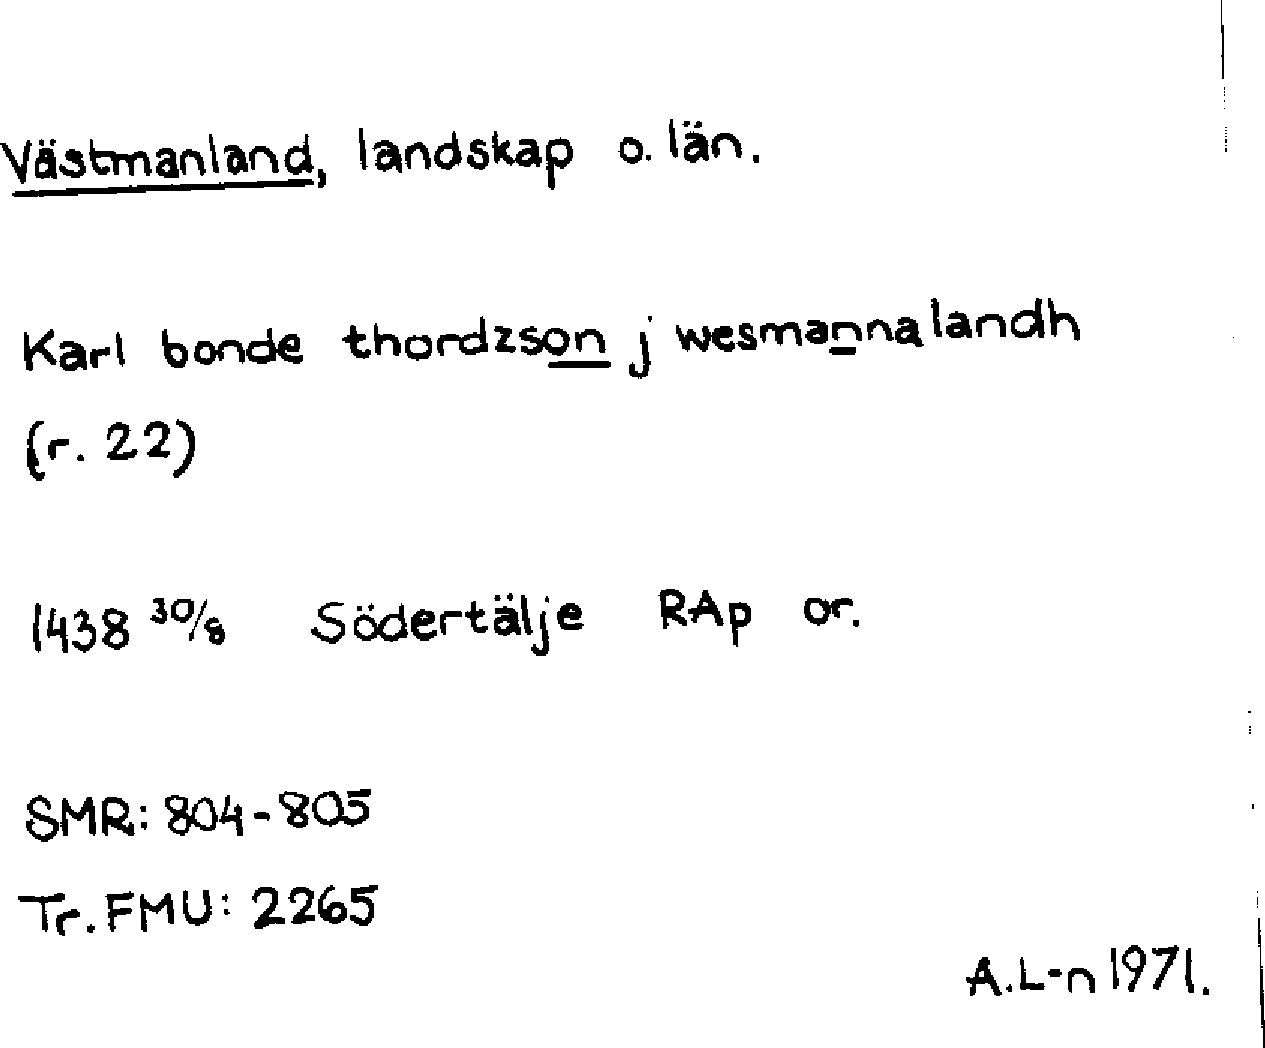 Västmanland, landskap o. län.
Karl bonde thordzson j wesmannalandh
(r. 22)
1438 30/8 Södertälje RAp or.
SMR: 804-805
Tr. FMU: 2265
A.L-n 1971.